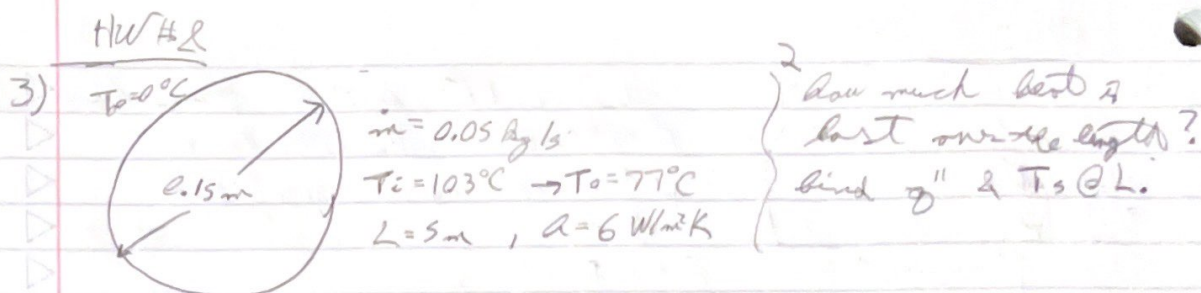 HW # 8
3) T∞=0°C
0.15m
ṁ = 0.05 kg/s
Ti = 103°C → To = 77°C
L = 5m , a = 6 W/m²K
2
how much heat is
lost over the length ?
find q" & Ts @ L.